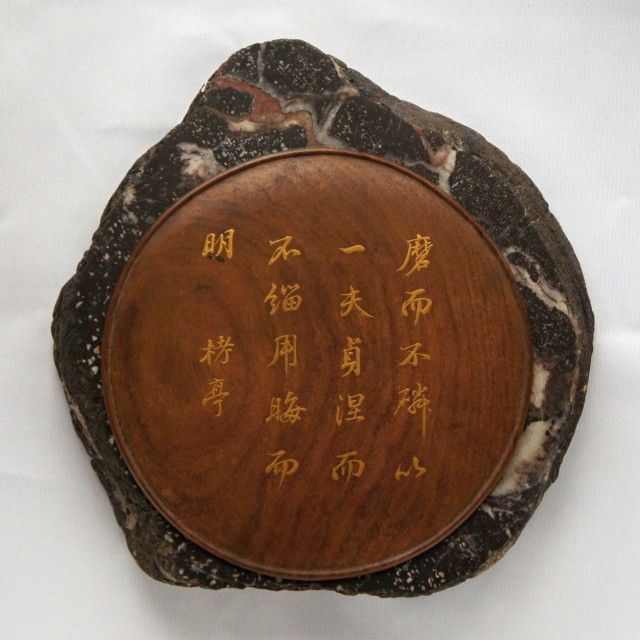 磨而不磷以
一夫貞涅而
不緇用晦而
明 栲亭